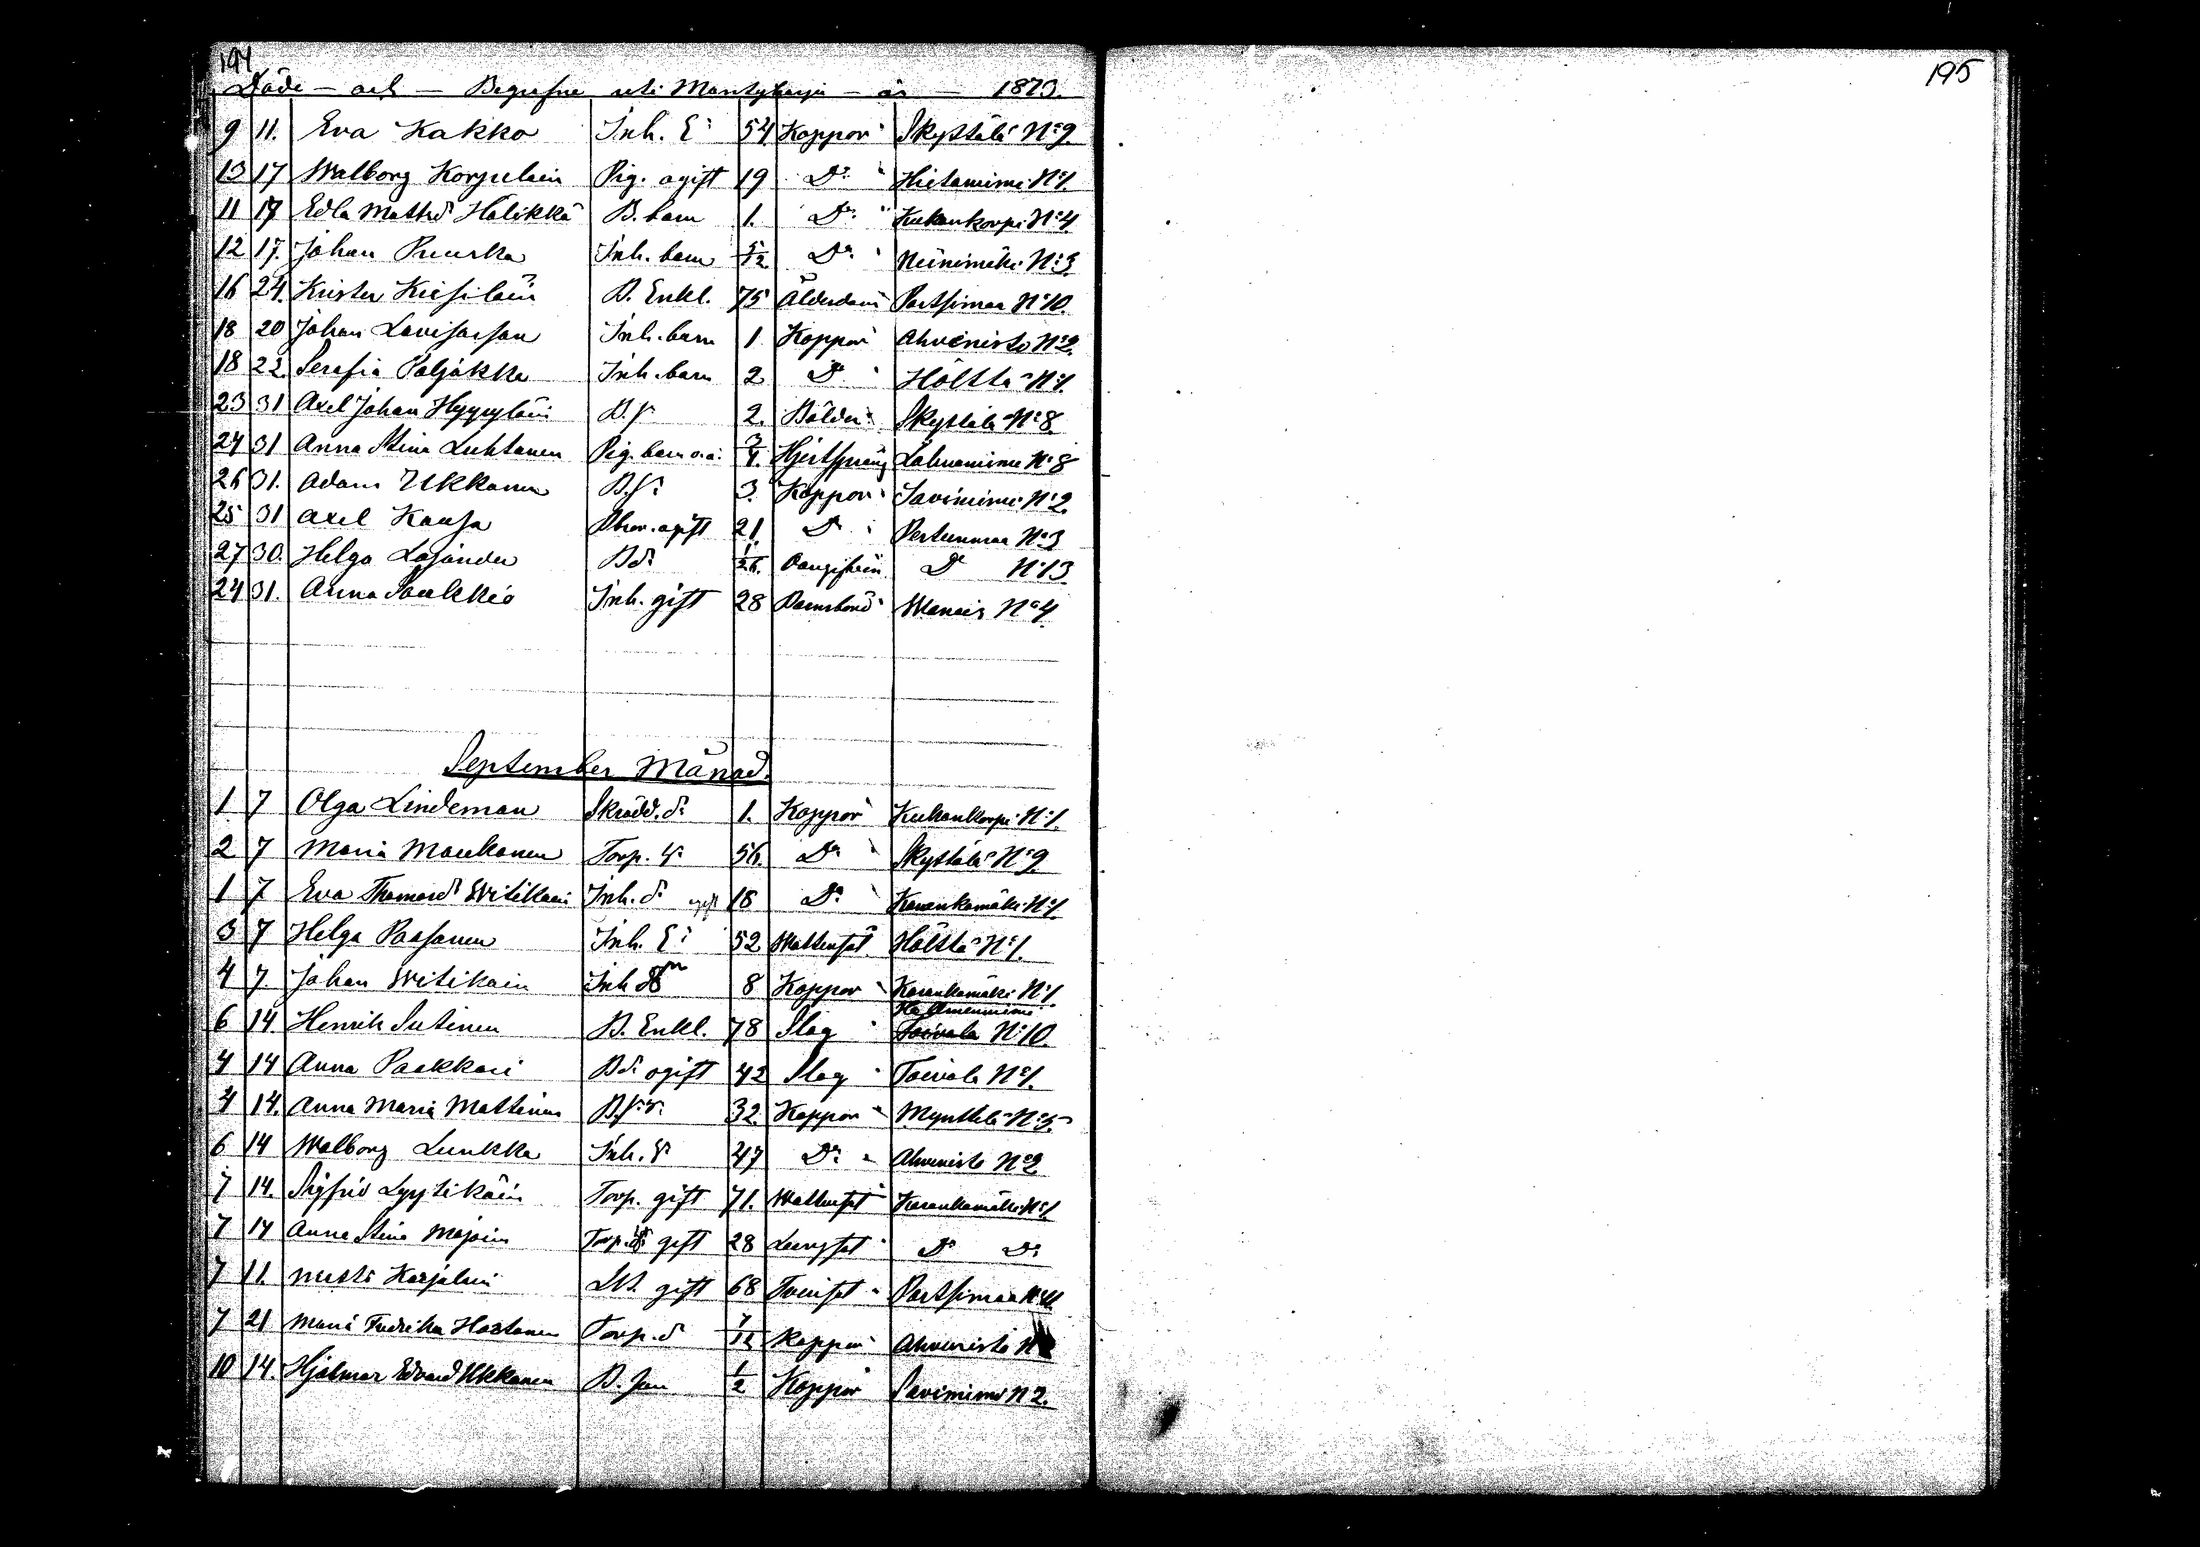 194
Döde – och – Begrafne uti Mäntyharju – år – 1873.
9 11. Eva Kakko Inh. E: 54 Koppor Skyttälä N:o 9.
13 17 Walborg Korpelain Pig. ogift 19 D:o Hietaniemi N:1.
11 17 Edla Mattsd: Halikka B. barn 1. D:o Kukankorpi N:4
12 17. Johan Puurka Inh. barn 5/12 D:o Niinimäki N:3.
16 24. Krister B. Enkl. 75 Ålderdom Partsimaa N:10.
18 20 Johan Inh. barn 1 Koppor Ahvenisto N:2.
18 22. Serafia Paljakka Inh. barn 2 D:o Höltta N:1.
23 31 Axel Johan Hyyryläin B. s: 2. Bölder Skyttälä N:8.
24 31 Anna Stina Luhtanen Pig. barn o.ä. 3/4. Hjertsprång Lahnaniemi N:8
26 31. Adam Ukkonen B. s: 3. Koppor Saviniemi N:2.
25 31 Axel Kausa ogift 21 D:o Pertunmaa N:3
27 30. Helga Lajander B d: 1/26. D:o N:13.
24 31. Anna Inh. gift 28 Barnsbörd Wanais N:4.
September Månad.
1 7 Olga Lindeman Skrädd. d: 1. Koppor Kukankorpi N:1.
2 7 Maria Maukonen Torp. E: 56. D:o Skyttälä N:9.
1 7 Eva Thomasd: Witikain Inh. d: ogift 18 D:o Karankamäki N:1.
3 7 Helga Paasonen Inh. E: 52 Wattensot Höltta N:1.
4 7. Johan Witikain Inh 8 Koppor Karankamäki N:1
6 14 Henrik Sutinen B. Enkl. 78 Slag Toivola N:10.
4 14 Anna Paakkari B d: ogift 42 Slag Toivola N:1.
4 14. Anna Maria Mattinen 32. Koppor Mynttilä N:5.
6 14 Walborg Lunkka Inh. 47 D:o Ahvenisto N:2
7 14. Sigfrid Lyytikäin Torp. gift 71. Wattusot Karankamäki N:1
7 14 Anna Stina Torp. gift 28 Lungsot D:o D:o
7 11. Karjalain gift 68 Partsimaa
7 21 Maria Fredrika Torp. d: 7/12 Koppor Ahvenisto N
10 14. Hjalmar Edvard Ukkonen B. son 1/2 Koppor Saviniemi N 2.
195